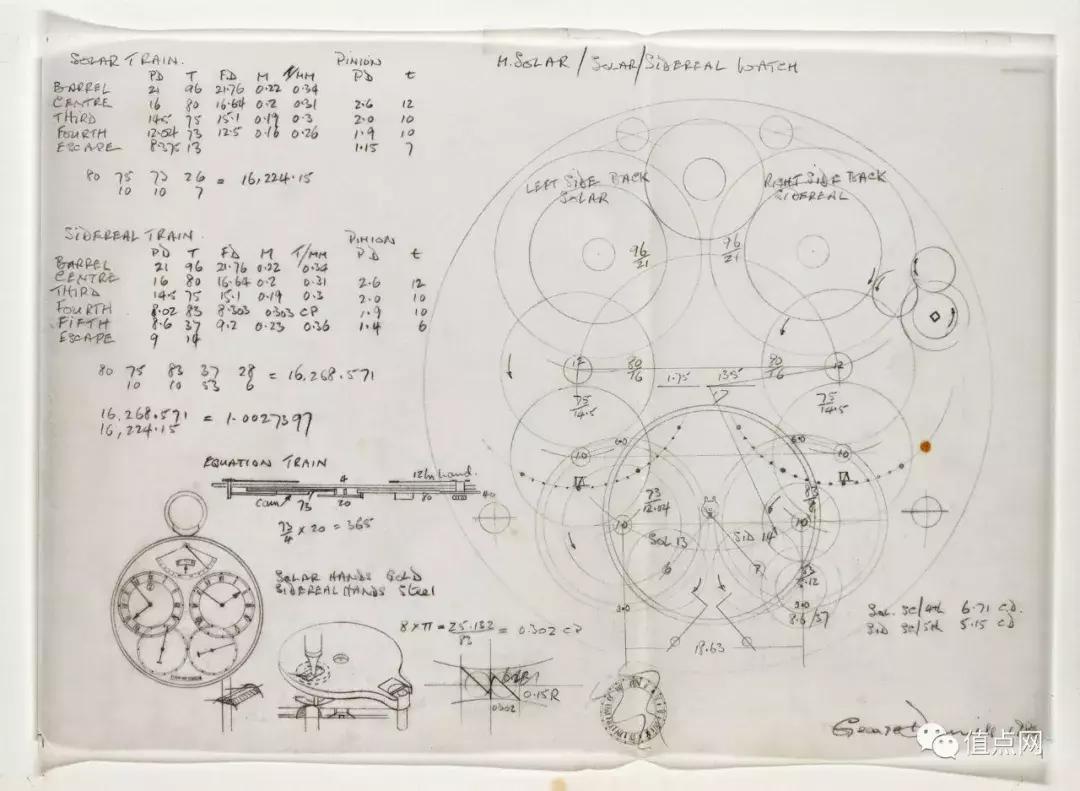 M. SOLAR / SOLAR / SIDEREAL WATCH
SOLAR TRAIN.
PINION
PD T FD M T/MM PD t
BARREL 21 96 21.76 0.22 0.34
CENTRE 16 80 16.64 0.2 0.31 2.6 12
THIRD 14.5 75 15.1 0.19 0.3 2.0 10
FOURTH 12.04 73 12.5 0.16 0.26 1.9 10
ESCAPE 8.375 13 1.15 7
80 75 73 26 = 16,224.15
10 10 7
SIDEREAL TRAIN.
PINION
PD T FD M T/MM PD t
BARREL 21 96 21.76 0.22 0.34
CENTRE 16 80 16.64 0.2 0.31 2.6 12
THIRD 14.5 75 15.1 0.19 0.3 2.0 10
FOURTH 8.02 83 8.303 0.303 CP 1.9 10
FIFTH 8.6 37 9.2 0.23 0.36 1.4 6
ESCAPE 9 14
80 75 83 37 28 = 16,268.571
10 10 53 6
16,268.571 = 1.0027397
16,224.15
EQUATION TRAIN
4 12
hand.
Cam 73 20 80 40
73/4 x 20 = 365
SOLAR HANDS GOLD
SIDEREAL HANDS STEEL
8 x π = 25.132 = 0.302 CP
83
0.15R
0.302
LEFT SIDE BACK
SOLAR
RIGHT SIDE BACK
SIDEREAL
96
21
96
21
12
80
16
1.75
135
80
16
12
75
14.5
75
14.5
10
60
60
10
73
12.04
83
8
10
10
SOL 13
SID 14
6
7
30
30
8.6/37
18.63
SOL. 3C/4TH 6.71 CD.
SID 3C/5TH 5.15 CD
George Daniels
值点网